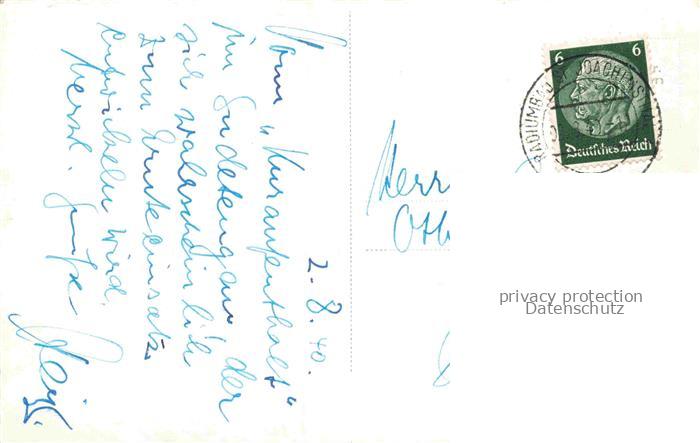 2. 8. 40.
Vom "Kuraufenthalt"
im Sudetengau der
sich wahrscheinlich
zum Ernteeinsatz
entwickeln wird.
herzl. Grüße
Herr
Otto
6 6
Deutsches Reich
RADIUMBAD ST. JOACHIMSTHAL
privacy protection
Datenschutz